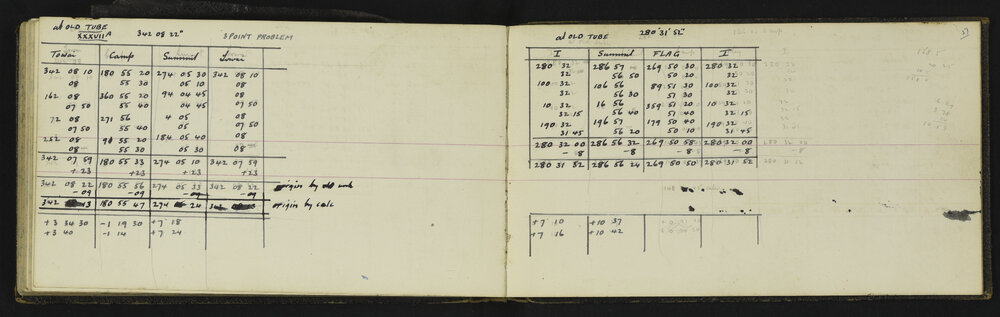 at OLD TUBE
XXXVII A 342 08 22" 3 POINT PROBLEM
Towai Camp Summit Towai
342 08 10 180 55 20 274 05 30 342 08 10
08 55 30 05 10 08
162 08 360 55 20 94 04 45 08
07 50 55 40 04 45 07 50
72 08 271 56 4 05 08
07 50 55 40 05 07 50
252 08 90 55 20 184 05 40 08
08 55 30 05 30 08
342 07 59 180 55 33 274 05 10 342 07 59
+23 +23 +23 +23
342 08 22 180 55 56 274 05 33 342 08 22 origin by old work
-09 -09 -09
342 13 180 55 47 274 24 342 origin by calc
+3 34 30 -1 19 30 +7 18
+3 40 -1 14 +7 24
at OLD TUBE 280° 31' 52"
I Summit FLAG I
280 32 286 57 269 50 30 280 32
32 56 50 50 20 32
100 32 106 56 89 51 30 100 32
32 56 30 51 30 32
10 32 16 56 359 51 20 10 32
32 15 56 40 51 40 32 15
190 32 196 57 179 50 40 190 32
31 45 56 20 50 10 31 45
280 32 00 286 56 32 269 50 58 280 32 00
-8 -8 -8 -8
280 31 52 286 56 24 269 50 50 280 31 52
+7 10 +10 37
+7 16 +10 42